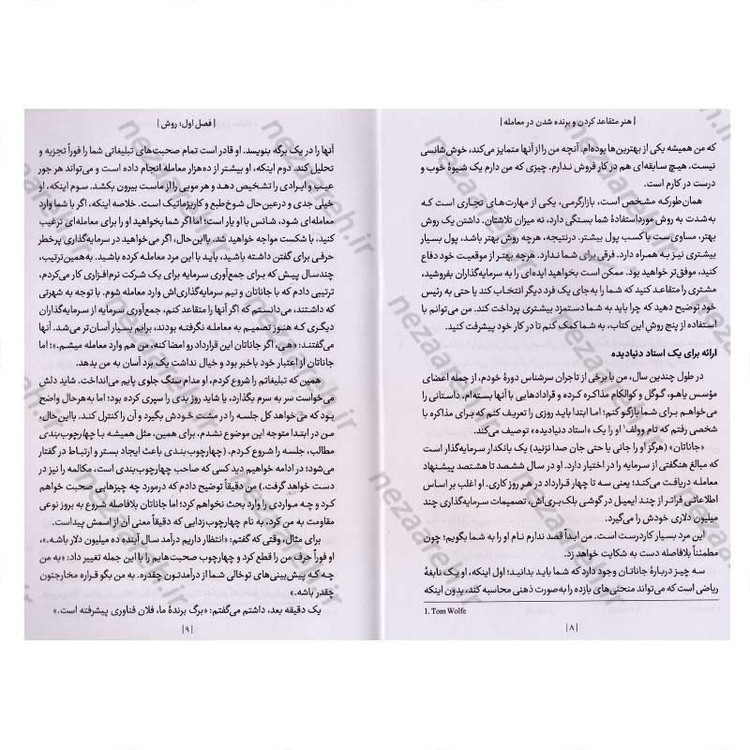 | هنر متقاعد کردن و برنده شدن در معامله |
که من همیشه یکی از بهترین‌ها بوده‌ام. آنچه من را از آنها متمایز می‌کند، خوش‌شانسی
نیست. هیچ سابقه‌ای هم در کار فروش ندارم. چیزی که من دارم یک شیوهٔ خوب و
درست در کارم است.
همان‌طورکه مشخص است، بازارگرمی، یکی از مهارت‌های تجاری است که
به‌شدت به روش مورداستفادهٔ شما بستگی دارد، نه میزان تلاشتان. داشتن یک روش
بهتر، مساوی ست با کسب پول بیشتر. درنتیجه، هرچه روش بهتر باشد، پول بسیار
بیشتری نیز به همراه دارد. فرقی برای شما ندارد. هرچه بهتر از موقعیت خود دفاع
کنید، موفق‌تر خواهید بود. ممکن است بخواهید ایده‌ای را به سرمایه‌گذاران بفروشید،
مشتری را متقاعد کنید که شما را به‌جای یک فرد دیگر انتخاب کند یا حتی به رئیس
خود توضیح دهید که چرا باید به شما دستمزد بیشتری پرداخت کند. من می‌توانم با
استفاده از پنج روش این کتاب، به شما کمک کنم تا در کار خود پیشرفت کنید.
ارائه برای یک استاد دنیادیده
در طول چندین سال، من با برخی از تاجران سرشناس دورهٔ خودم، از جمله اعضای
مؤسس یاهو، گوگل و کوالکام مذاکره کرده و قراردادهایی با آنها بسته‌ام. داستانی را
می‌خواهم برای شما بازگو کنم؛ اما ابتدا باید روزی را تعریف کنم که برای مذاکره با
شخصی رفتم که تام وولف¹ او را یک «استاد دنیادیده» توصیف می‌کند.
«جاناتان» (هرگز او را جانی یا حتی جان صدا نزنید) یک بانکدار سرمایه‌گذار است
که مبالغ هنگفتی از سرمایه را در اختیار دارد. او در سال ششصد تا هشتصد پیشنهاد
معامله دریافت می‌کند؛ یعنی سه تا چهار قرارداد در هر روز کاری. او اغلب بر اساس
اطلاعاتی فراتر از چند ایمیل در گوشی بلک‌بری‌اش، تصمیمات سرمایه‌گذاری چند
میلیون دلاری خودش را می‌گیرد.
این مرد بسیار کاردرست است. من ابداً قصد ندارم نام او را به شما بگویم؛ چون
مطمئناً بلافاصله دست به شکایت خواهد زد.
سه چیز دربارهٔ جاناتان وجود دارد که شما باید بدانید؛ اول اینکه، او یک نابغهٔ
ریاضی است که می‌تواند منحنی‌های بازده را به‌صورت ذهنی محاسبه کند، بدون اینکه
1. Tom Wolfe
| ۸ |
| فصل اول: روش |
آنها را در یک برگه بنویسد. او قادر است تمام صحبت‌های تبلیغاتی شما را فوراً تجزیه و
تحلیل کند. دوم اینکه، او بیشتر از ده‌هزار معامله انجام داده است و می‌تواند هر جور
عیب و ایرادی را تشخیص دهد و هر مویی را از ماست بیرون بکشد. سوم اینکه، او
خیلی جدی و درعین‌حال شوخ‌طبع و کاریزماتیک است. خلاصه اینکه، اگر با شما وارد
معامله‌ای شود، شانس با او یار است؛ اما اگر شما بخواهید او را برای معامله‌ای ترغیب
کنید، با شکست مواجه خواهید شد. بااین‌حال، اگر می‌خواهید در سرمایه‌گذاری پرخطر
حرفی برای گفتن داشته باشید، باید با این مرد معامله کرده باشید. به‌همین‌ترتیب،
چندسال پیش که برای جمع‌آوری سرمایه برای یک شرکت نرم‌افزاری کار می‌کردم،
ترتیبی دادم که با جاناتان و تیم سرمایه‌گذاری‌اش وارد معامله شوم. با توجه به شهرتی
که داشتند، می‌دانستم که اگر آنها را متقاعد کنم، جمع‌آوری سرمایه از سرمایه‌گذاران
دیگری که هنوز تصمیم به معامله نگرفته بودند، برایم بسیار آسان‌تر می‌شد. آنها
می‌گفتند: «هی، اگر جاناتان این قرارداد رو امضا کنه، من هم وارد معامله میشم.»؛ اما
جاناتان از اعتبار خود باخبر بود و خیال نداشت یک برد آسان به من بدهد.
همین که تبلیغاتم را شروع کردم، او مدام سنگ جلوی پایم می‌انداخت. شاید دلش
می‌خواست سر به سرم بگذارد، یا شاید روز بدی را سپری کرده بود؛ اما به‌هرحال واضح
بود که می‌خواهد کل جلسه را در مشت خودش بگیرد و آن را کنترل کند. بااین‌حال،
من در ابتدا متوجه این موضوع نشدم، برای همین، مثل همیشه با چهارچوب‌بندی
مطالب، جلسه را شروع کردم. (چهارچوب‌بندی باعث ایجاد بستر و ارتباط در گفتار
می‌شود؛ در ادامه خواهیم دید کسی که صاحب چهارچوب‌بندی است، مکالمه را نیز در
دست خواهد گرفت.) من دقیقاً توضیح دادم که درمورد چه چیزهایی صحبت خواهم
کرد و چه مواردی را وارد بحث نخواهم کرد؛ اما جاناتان بلافاصله شروع به بروز نوعی
مقاومت به من کرد، به نام چهارچوب‌زدایی که دقیقاً معنی آن از اسمش پیداست.
برای مثال، وقتی که گفتم: «انتظار داریم درآمد سال آینده ده میلیون دلار باشه.»،
او فوراً حرف من را قطع کرد و چهارچوب صحبت‌هایم را با این جمله تغییر داد: «به من
چه که پیش‌بینی‌های توخالی شما از درآمدتون چقدره. به من بگو قراره مخارجتون
چقدر باشه.»
یک دقیقه بعد، داشتم می‌گفتم: «برگ برندهٔ ما، فلان فناوری پیشرفته است.»
| ۹ |
nezaareh.ir